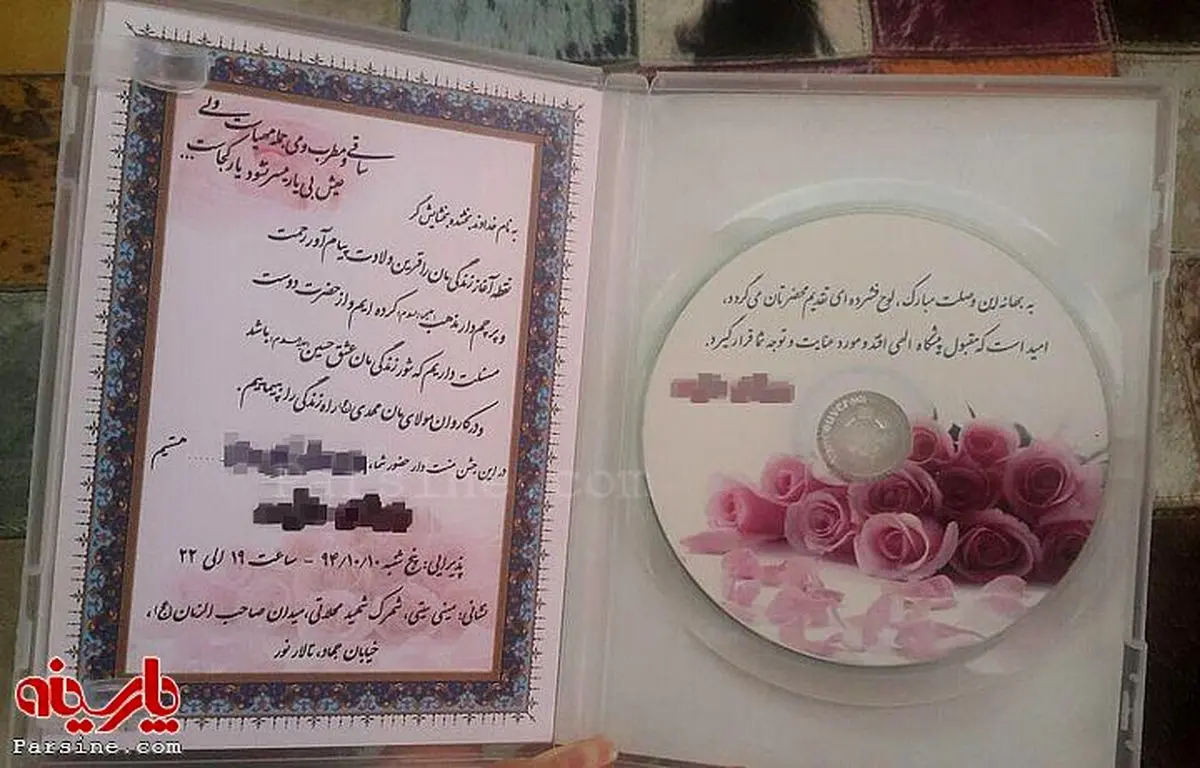 ساقی و مطرب و می جمله مهیاست ولی
عیش بی یار میسر نشود یار کجاست...
به نام خداوند بخشنده بخشایش گر
نقطه آغاز زندگی مان را قرین ولادت پیام آور رحمت
و پرچم دار مذهب کرده ایم و از حضرت دوست
مسئلت داریم که شور زندگی مان عشق حسین باشد
و در کاروان مولای مان مهدی (عج) راه زندگی را بپیماییم.
در این جشن منت دار حضور شما، ..... هستیم
پذیرایی: پنج شنبه ۹۴/۱۰/۱۰ - ساعت ۱۹ الی ۲۲
نشانی: مینی سیتی، شهرک شهید محلاتی، میدان صاحب الزمان (عج)،
خیابان جهاد، تالار نور
به بهانه این وصلت مبارک، لوح فشرده ای تقدیم محضرتان می گردد،
امید است که مقبول پیشگاه الهی افتد و مورد عنایت و توجه شما قرار گیرد.
پارسینه
Parsine.com
Parsine.com